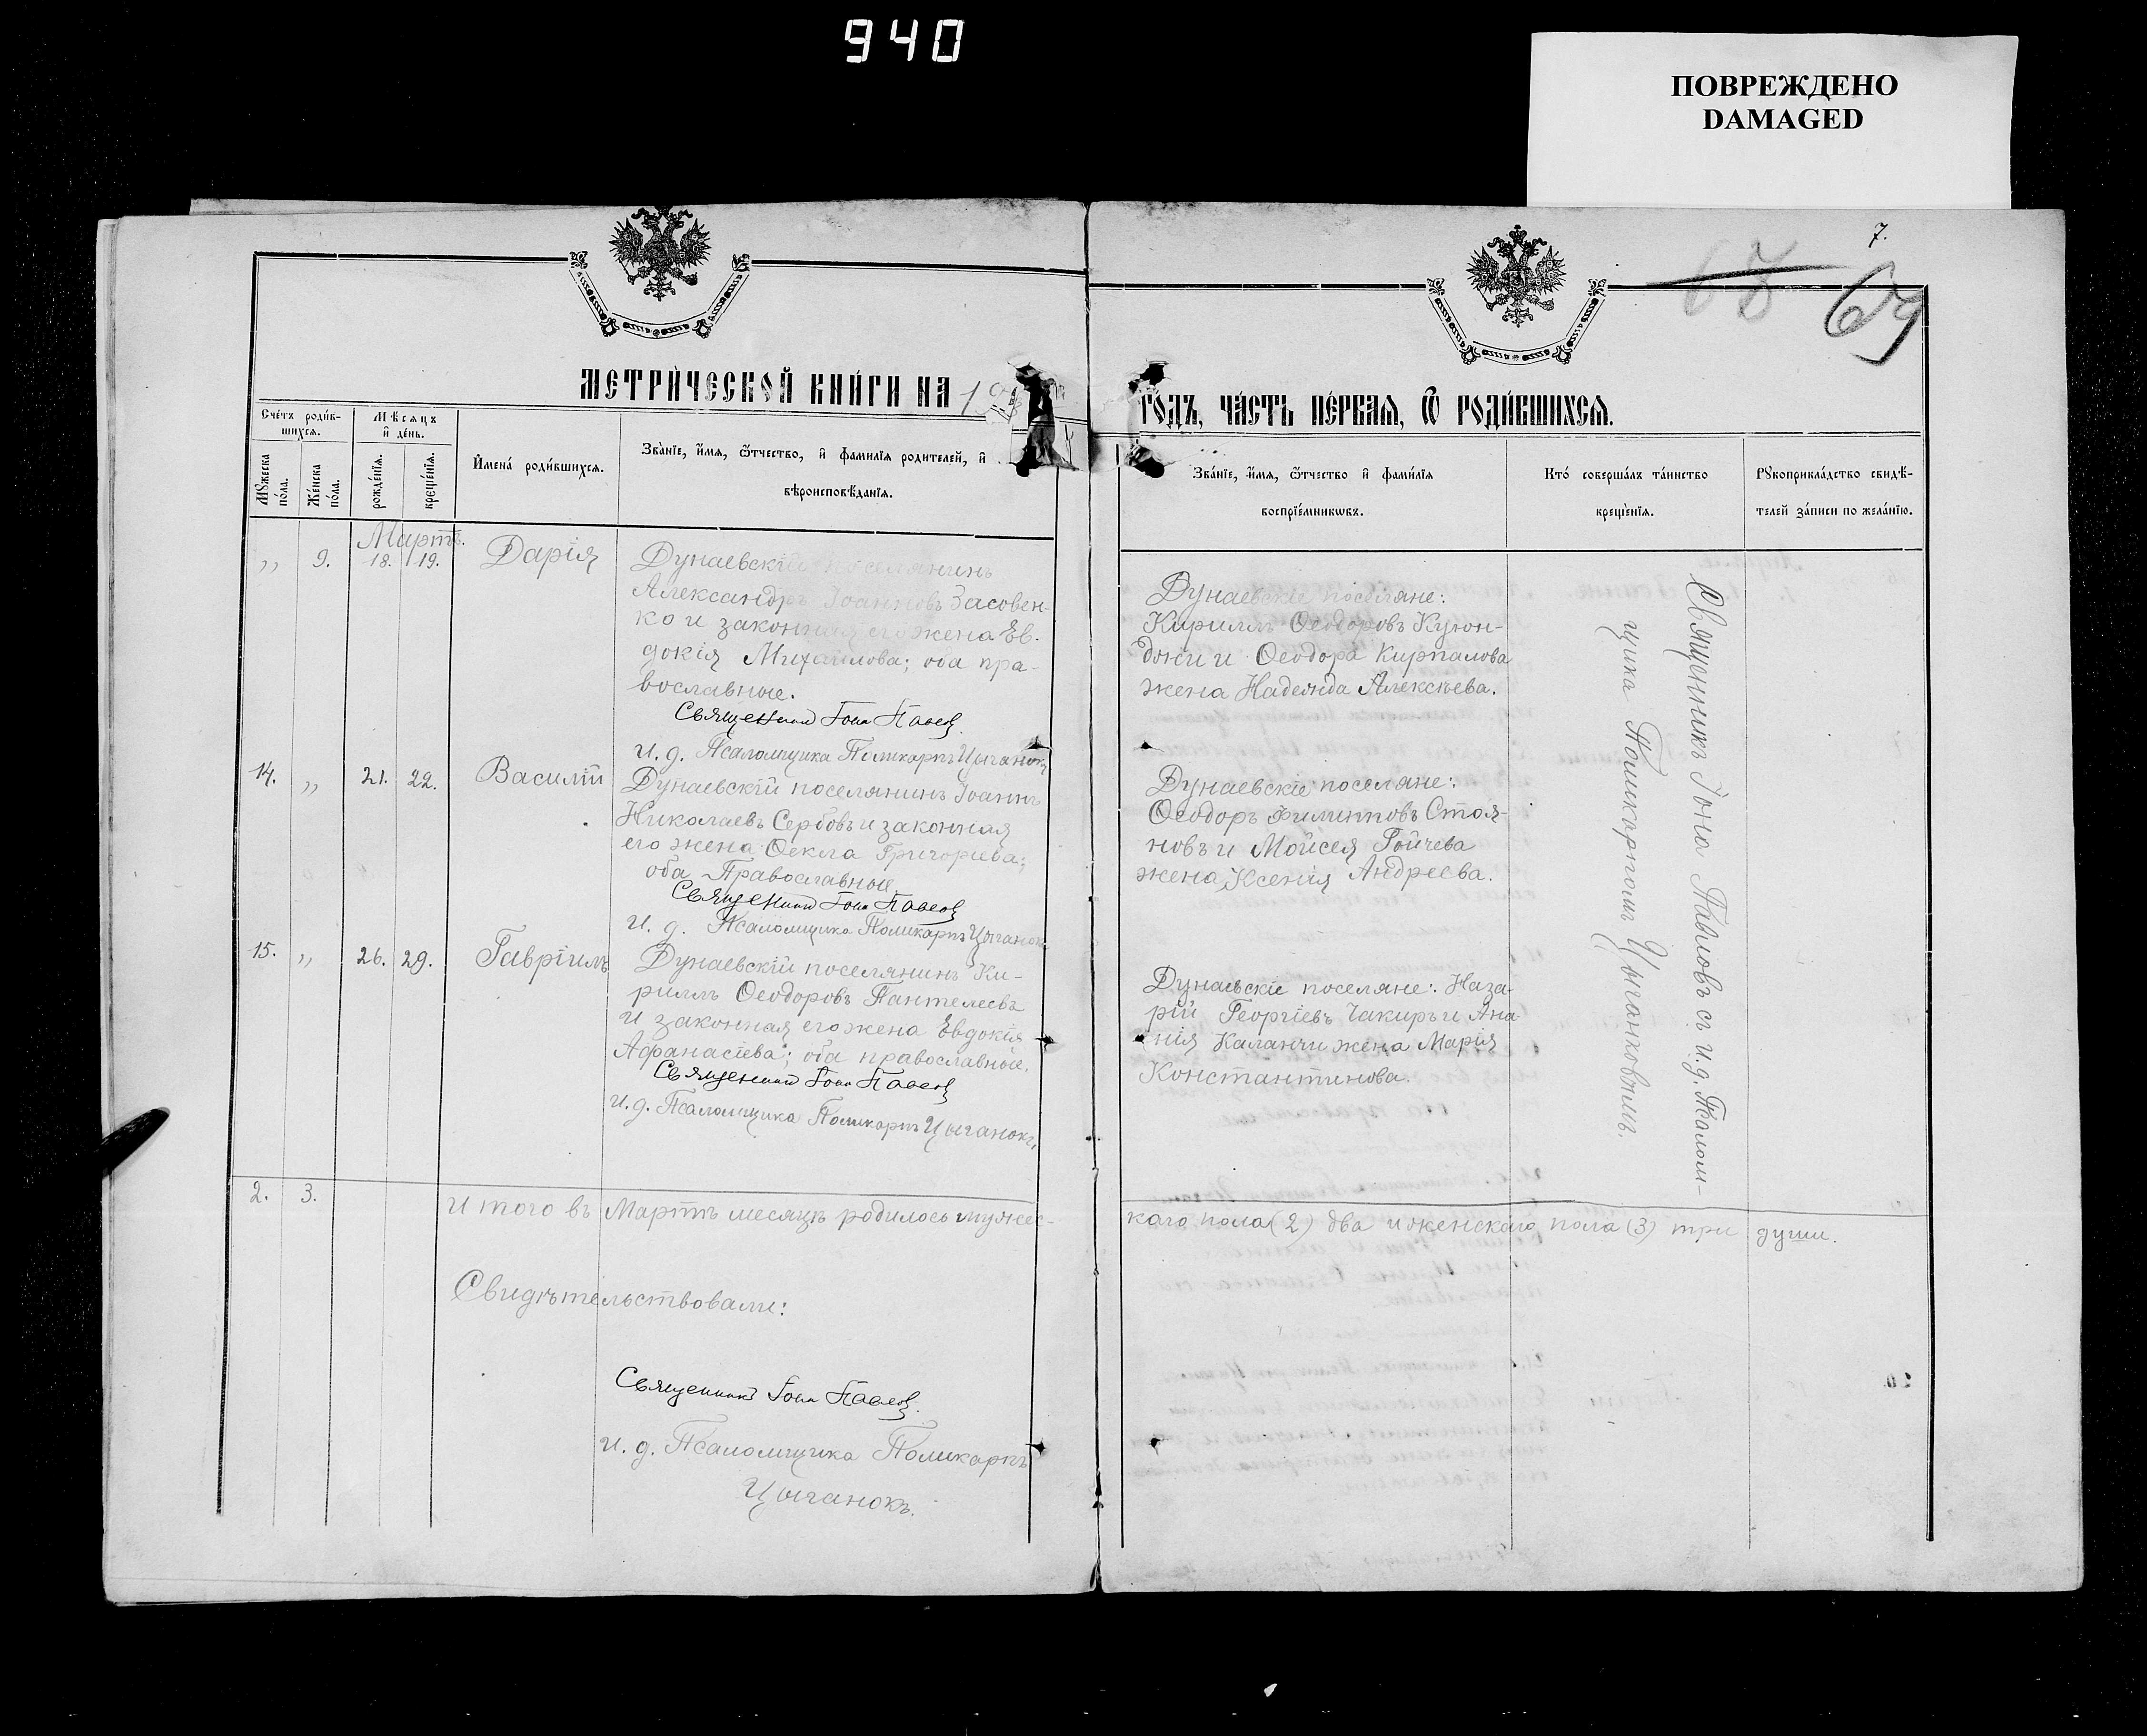 940
ПОВРЕЖДЕНО
DAMAGED
7.
67 69
МЕТРИ́ЧЕСКОЙ КНИ́ГИ НА 19
ГО́ДЪ, ЧА́СТЬ ПЕ́РВАЯ, Ѿ РОДИ́ВШИХСЯ.
Сче́тъ роди́в-
шихся.
Мѣ́сяцъ
и҆ де́нь.
Мꙋ́жеска
по́ла.
Же́нска
по́ла.
рожде́нїя.
креще́нїя.
И҆мена̀ роди́вшихся.
Зва́нїе, и҆́мя, ѻ҆́тчество, и҆ фами́лїя роди́телей, и҆
вѣроисповѣ́данїя.
Зва́нїе, и҆́мя, ѻ҆́тчество и҆ фами́лїя
воспрїе́мникѡвъ.
Кто́ соверша́лъ та́инство
креще́нїя.
Рꙋкоприкла́дство свидѣ́-
телей за́писи по жела́нїю.
Мартъ.
„ 9. 18. 19. Дарія
Дунаевскій поселянинъ
Александръ Іоанновъ Засовен-
ко и законная его жена Ев-
докія Михаилова; оба пра-
вославные.
Священникъ Іона Павловъ
и. д. Псаломщика Поликарпъ Цыганокъ
Дунаевскіе поселяне:
Кириллъ Ѳеодоровъ
и Ѳеодора Кирпалова
жена Надежда Алексѣева.
14. „ 21. 22. Василій
Дунаевскій поселянинъ Іоаннъ
Николаевъ Сербовъ и законная
его жена Ѳекла Григорьева;
оба Православные.
Священникъ Іона Павловъ
и. д. Псаломщика Поликарпъ Цыганокъ
Дунаевскіе поселяне:
Ѳеодоръ Филипповъ Стоя-
новъ и Мойсея Гойчева
жена Ксенія Андреева.
15. „ 26. 29. Гавріилъ
Дунаевскій поселянинъ Ки-
риллъ Ѳеодоровъ Пантелеевъ
и законная его жена Евдокія
Афанасіева; оба православные.
Священникъ Іона Павловъ
и. д. Псаломщика Поликарпъ Цыганокъ,
Дунаевскіе поселяне: Наза-
рій Георгіевъ Чакиръ и Ана-
нія Каланчи жена Марія
Константинова.
Священникъ Іона Павловъ съ и. д. Псалом-
щика Поликарпомъ Цыганковымъ.
2. 3. И того въ Мартѣ месяцѣ родилось мужес-
каго пола (2) два и женскаго пола (3) три души.
Свидѣтельствовали:
Священникъ Іона Павловъ.
и. д. Псаломщика Поликарпъ
Цыганокъ.